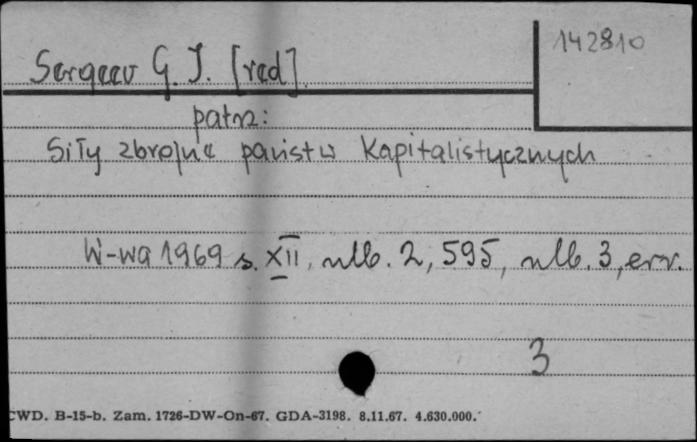 142810
Sergeev G. J. [red]
patrz:
Siły zbrojne państw kapitalistycznych
W-wa 1969 s. XII, nlb. 2, 595, nlb. 3, err.
3
CWD. B-15-b. Zam. 1726-DW-On-67. GDA-3198. 8.11.67. 4.630.000.